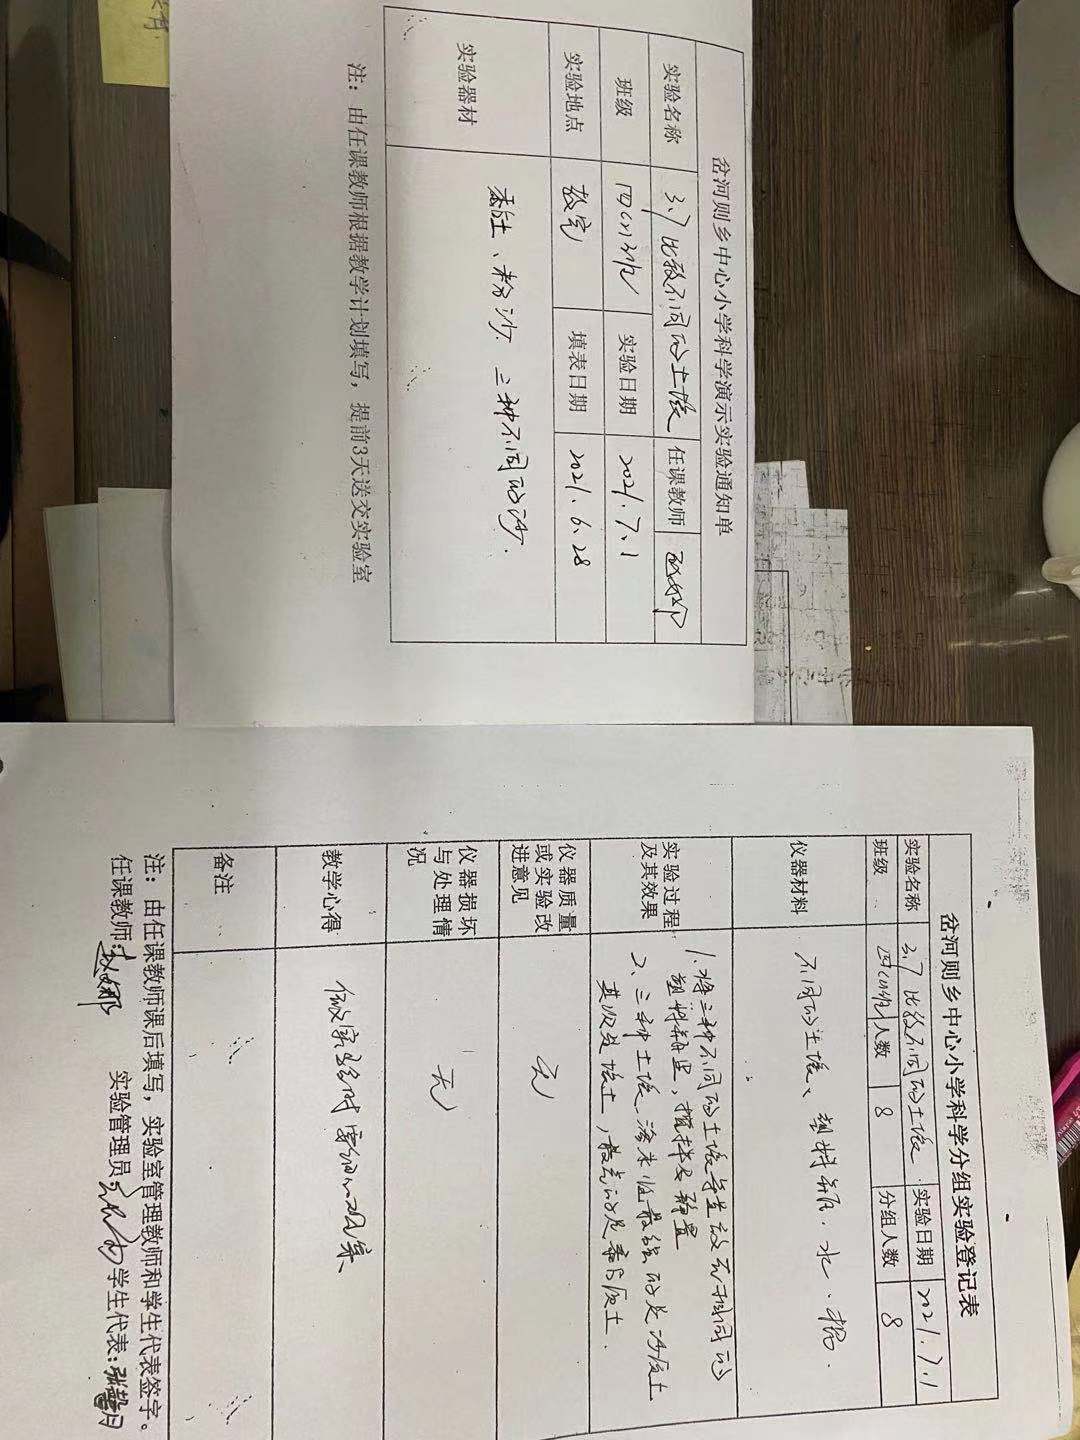 岔河则乡中心小学科学演示实验通知单
实验名称 3.7比较不同的土壤 任课教师
班级 四(1)班 实验日期 2021.7.1
实验地点 教室 填表日期 2021.6.28
实验器材 黏土、粉沙、三种不同的沙.
注：由任课教师根据教学计划填写，提前3天送交实验室
岔河则乡中心小学科学分组实验登记表
实验名称 3.7比较不同的土壤 实验日期 2021.7.1
班级 四(1)班 人数 8 分组人数 8
仪器材料 不同的土壤、塑料瓶.水.
实验过程及其效果
1.将三种不同的土壤等量放在相同的
塑料瓶里，搅拌及静置
2、三种土壤渗水性最强的是沙质土
其次是壤土，最差的是黏质土.
仪器质量或实验改进意见 无
仪器损坏与处理情况 无
教学心得 做实验时需细心观察
备注
注：由任课教师课后填写，实验室管理教师和学生代表签字。
任课教师：赵娜 实验管理员： 学生代表：